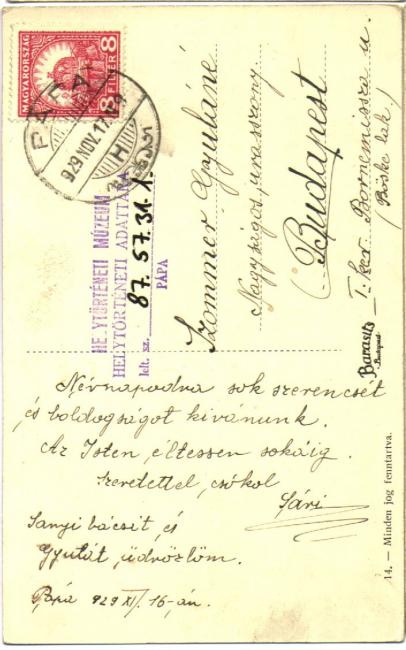 MAGYARORSZÁG
8 FILLÉR 8
PÁPA
929 NOV. 17
HELYTÖRTÉNETI MÚZEUM
HELYTÖRTÉNETI ADATTÁRA
lelt. sz. 87. 57. 31. 1.
PÁPA
Szommer Gyuláné
Nagyságos úrasszony
Budapest
I. ker. Bornemissza u.
(Böske lak.)
Barasits
Budapest
Névnapodra sok szerencsét
és boldogságot kivánunk.
Az Isten éltessen sokáig.
Szeretettel, csókol
Sári
Sanyi bácsit, és
Gyulát, üdvözlöm.
Pápa 929 XI. 16-án.
14. — Minden jog fenntartva.